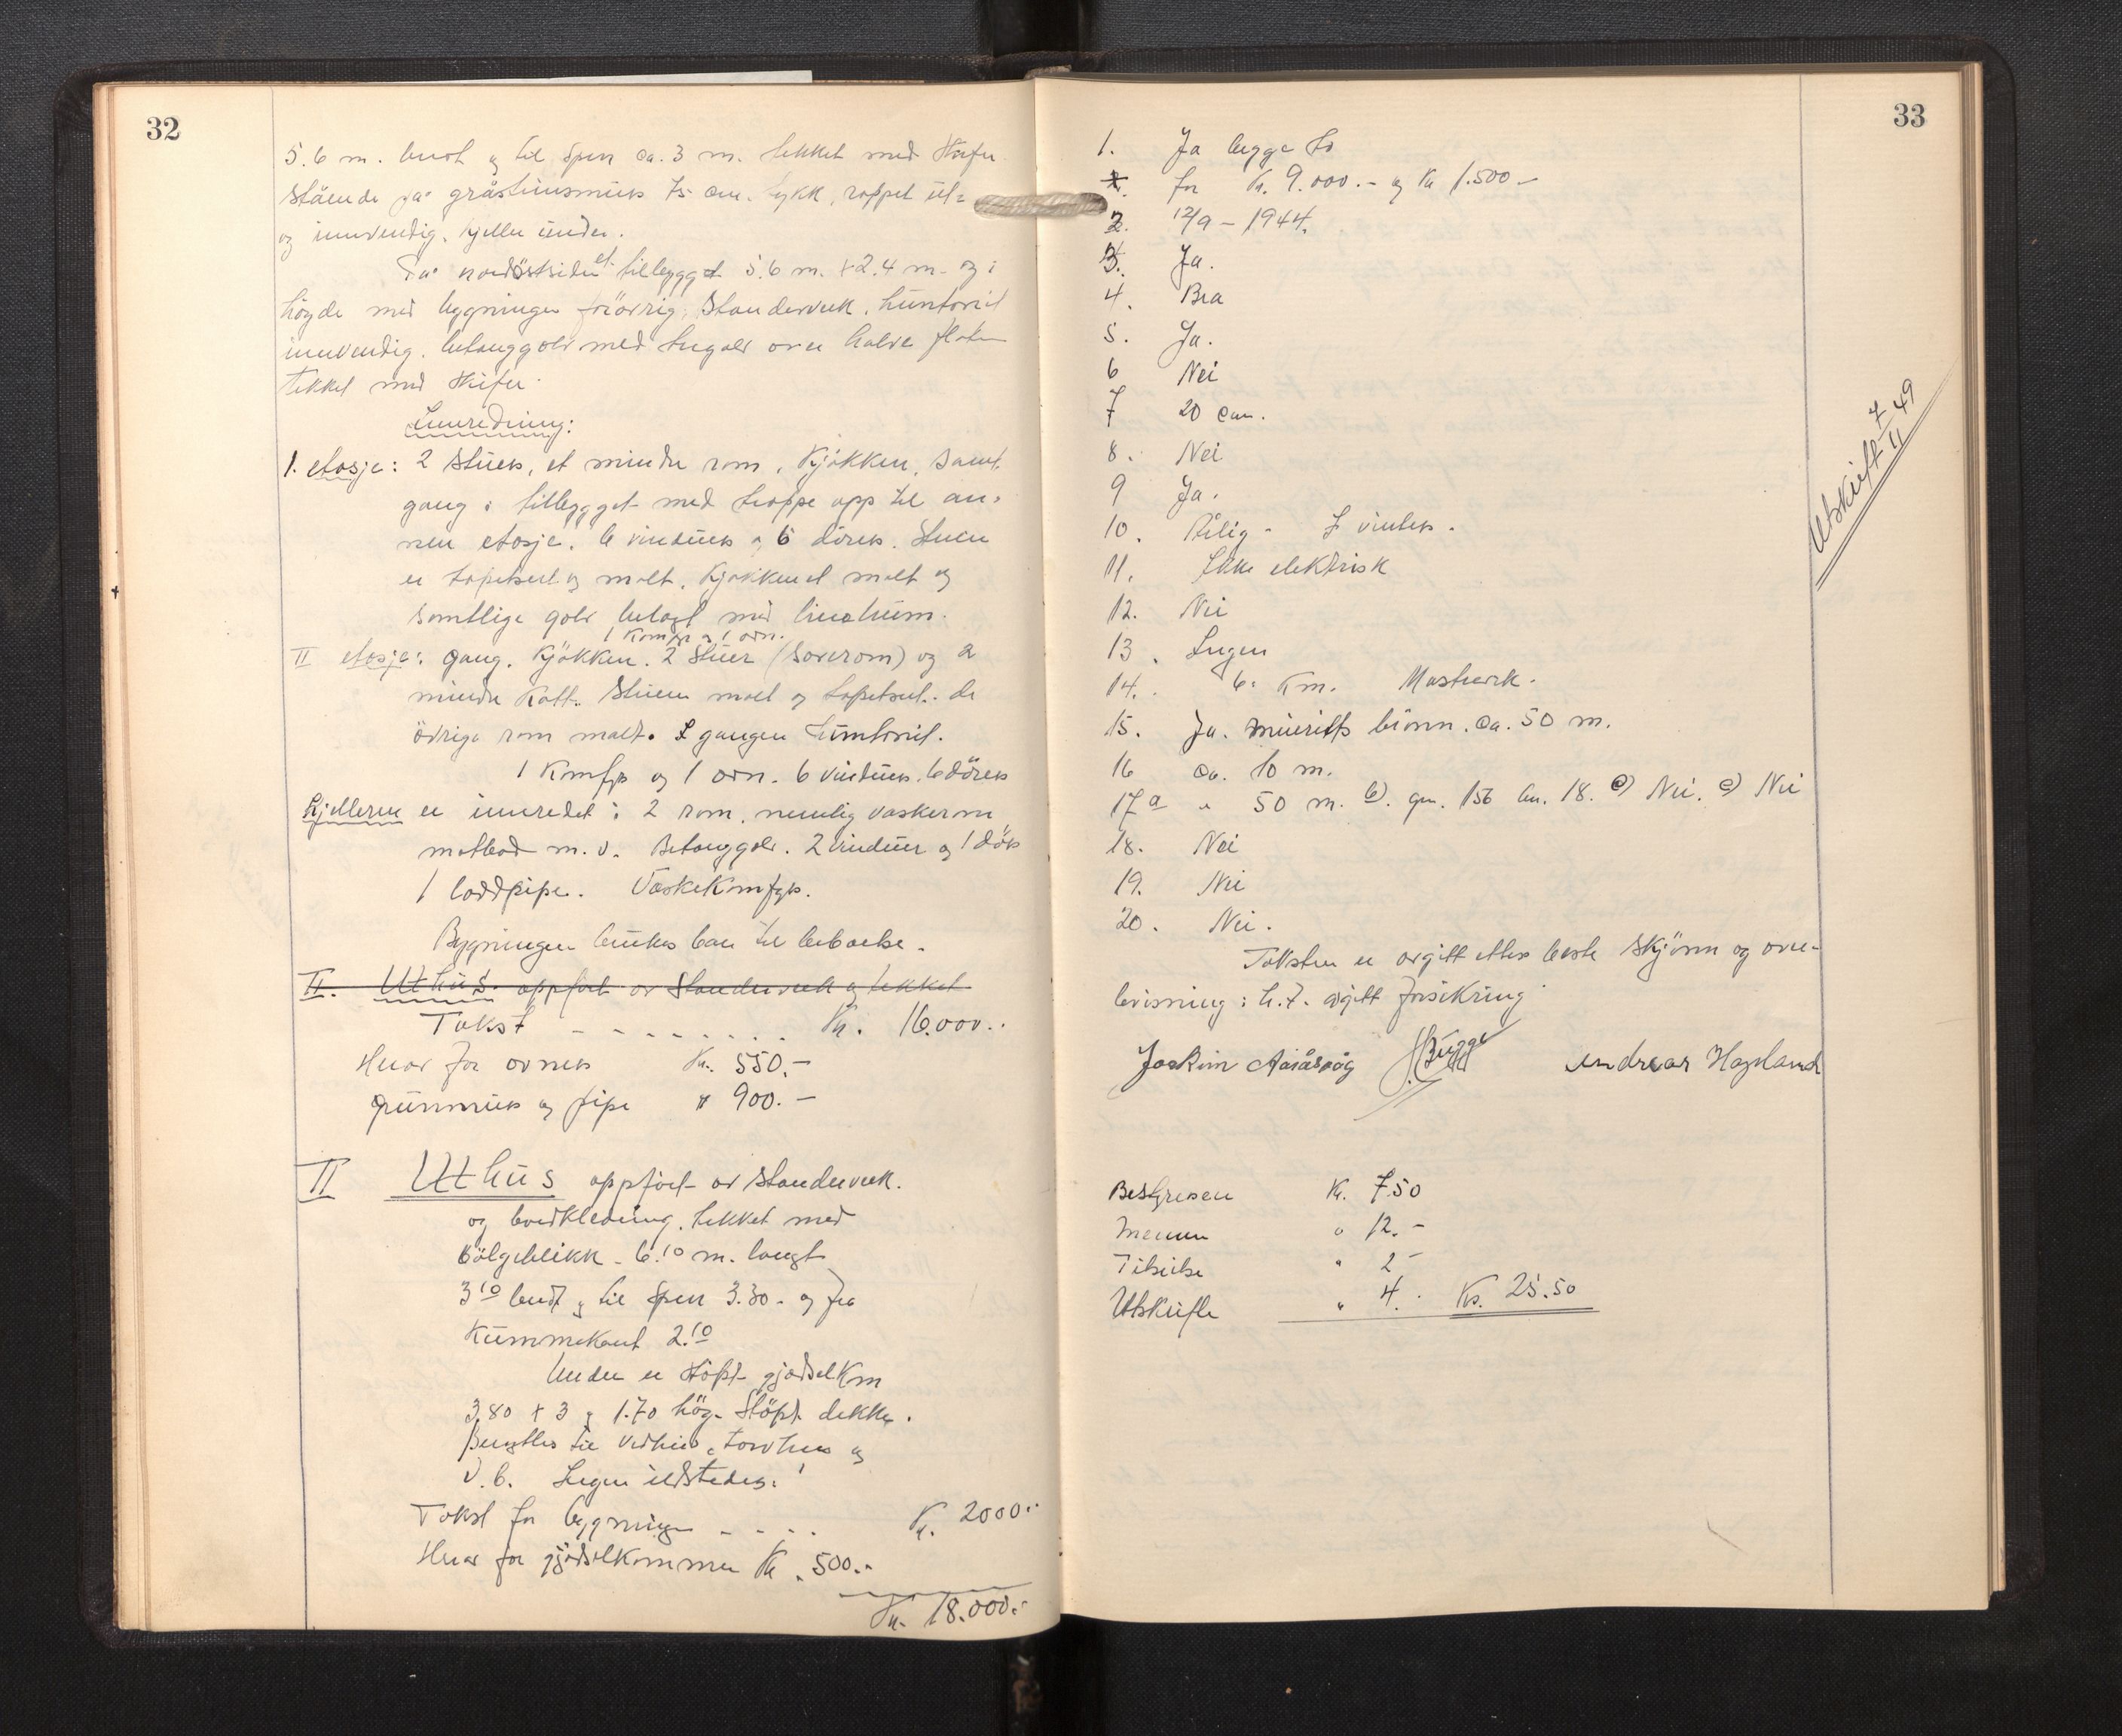 32
5.6 m. bredt og til Spen ca. 3 m. tekket med Skifer
stående på gråsteinsmur 75 cm. tykk, rappet ut=
og innvendig. Kjeller under.
På nordöstsiden et tillegget 5.6 m. x 2.4 m. og i
höyde med bygningen forövrig, Standerverk, huntonit
innvendig. betonggolv med tregolv over halve flaten
tekket med Skifer.
Innredning:
1. etasje: 2 Stuer, et mindre rom, Kjökken, Samt
gang i tillegget med trappe opp til an-
nen etasje. 6 vinduer og 6 dörer. Stuen
er tapetsert og malt. Kjökkenet malt og
samtlige golv belagt med linoleum.
1 Komfyr og 1 ovn.
II etasje: gang. Kjökken. 2 Stuer (Soverom) og 2
mindre Kott. Stuen malt og tapetsert. de
övrige rom malt. I gangen huntonit.
1 Komfyr og 1 ovn. 6 vinduer. 6 dörer
Kjelleren er innredet i 2 rom, nemlig vaskerom
matbod m. v. Betonggolv. 2 vinduer og 1 dör
1 loddpipe. Vaskekomfyr.
Bygningen brukes bare til beboelse.
II. Uthus oppfört av Standerverk og tekket
Takst - - - - - - - Kr. 16.000.-
Herav for ovner Kr. 550.-
grunnmur og pipe " 900.-
II Uthus oppfört av Standerverk.
og bordkledning, tekket med
bölgeblikk. 6.10 m. langt
3 10 bredt og til Spen 3.30 - og fra
Kummekant 2.10
Under er Stöpt gjödselKum
3.80 x 3 og 1.70 hög. Stöpt dekke.
Benyttes til vedhus, torvhus og
v. b. Ingen ildsteder.
Takst for bygningen - - - - Kr. 2000.-
Herav for gjödselkummen Kr. 500.-
Kr. 18.000.-
33
1. Ja begge to
2. for Kr. 9.000.- og Kr 1.500-
2. 12/9 - 1944.
3. Ja.
4. Bra
5. Ja.
6 Nei
7 20 cm.
8. Nei
9 Ja.
10. Årlig - I vinter.
11. Ikke elektrisk
12. Nei
13. Ingen
14. 6. Km. Mastrevik.
15. Ja. murt brönn. ca. 50 m.
16 ca. 10 m.
17 a " 50 m. b). gn. 156 bn. 18. c) Nei. e) Nei
18. Nei
19. Nei
20. Nei.
Taksten er avgitt etter beste Skjönn og over-
bevisning i h.t. avgitt forsikring
Joakim Aaråsvåg Bugge Andreas Hopland
Bestyreren Kr. 7.50
Mennene " 12.-
" 2-
Utskrifter " 4.- Kr. 25.50
Utskrift 7/11 49